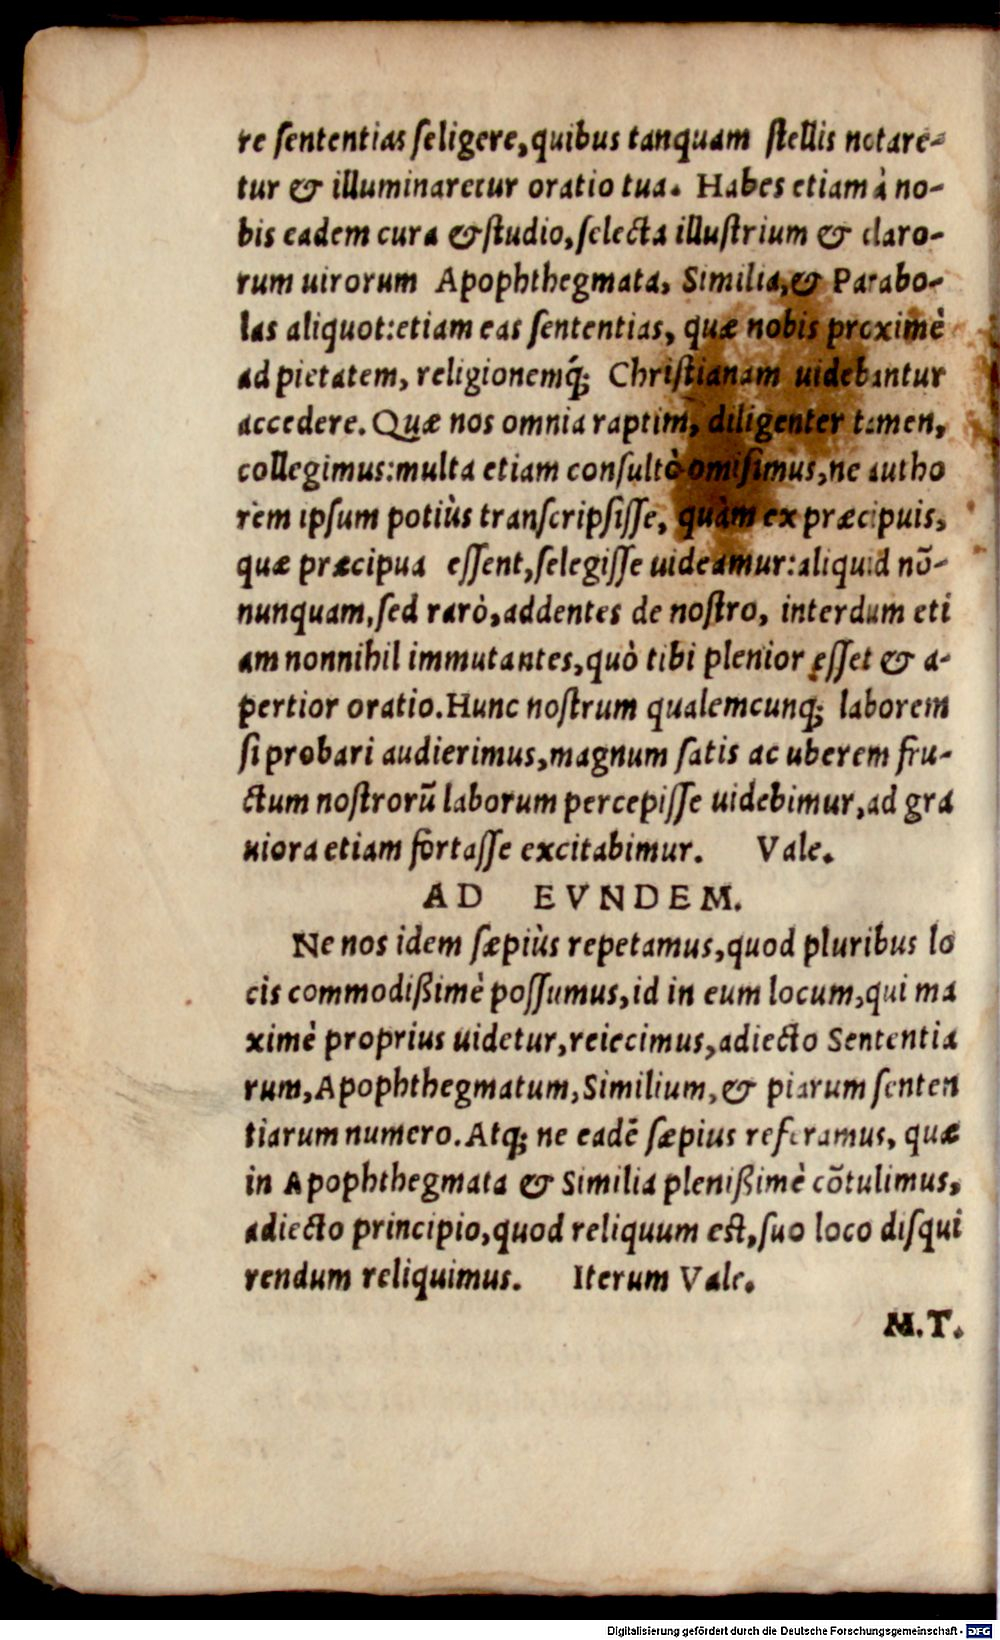 re sententias seligere, quibus tanquam stellis notare-
tur & illuminaretur oratio tua. Habes etiam à no-
bis eadem cura & studio, selecta illustrium & claro-
rum uirorum Apophthegmata, Similia, & Parabo-
las aliquot: etiam eas sententias, quæ nobis proximè
ad pietatem, religionemq́; Christianam uidebantur
accedere. Quæ nos omnia raptim, diligenter tamen,
collegimus: multa etiam consultò omisimus, ne autho
rem ipsum potiùs transcripsisse, quàm ex præcipuis,
quæ præcipua essent, selegisse uideamur: aliquid nō-
nunquam, sed rarò, addentes de nostro, interdum eti
am nonnihil immutantes, quò tibi plenior esset & a-
pertior oratio. Hunc nostrum qualemcunq; laborem
si probari audierimus, magnum satis ac uberem fru-
ctum nostrorū laborum percepisse uidebimur, ad gra
uiora etiam fortasse excitabimur. Vale.
AD EVNDEM.
Ne nos idem sæpiùs repetamus, quod pluribus lo
cis commodißimè possumus, id in eum locum, qui ma
ximè proprius uidetur, reiecimus, adiecto Sententia
rum, Apophthegmatum, Similium, & piarum senten
tiarum numero. Atq; ne eadē sæpius referamus, quæ
in Apophthegmata & Similia plenißimè cōtulimus,
adiecto principio, quod reliquum est, suo loco disqui
rendum reliquimus. Iterum Vale.
M.T.
Digitalisierung gefördert durch die Deutsche Forschungsgemeinschaft - DFG